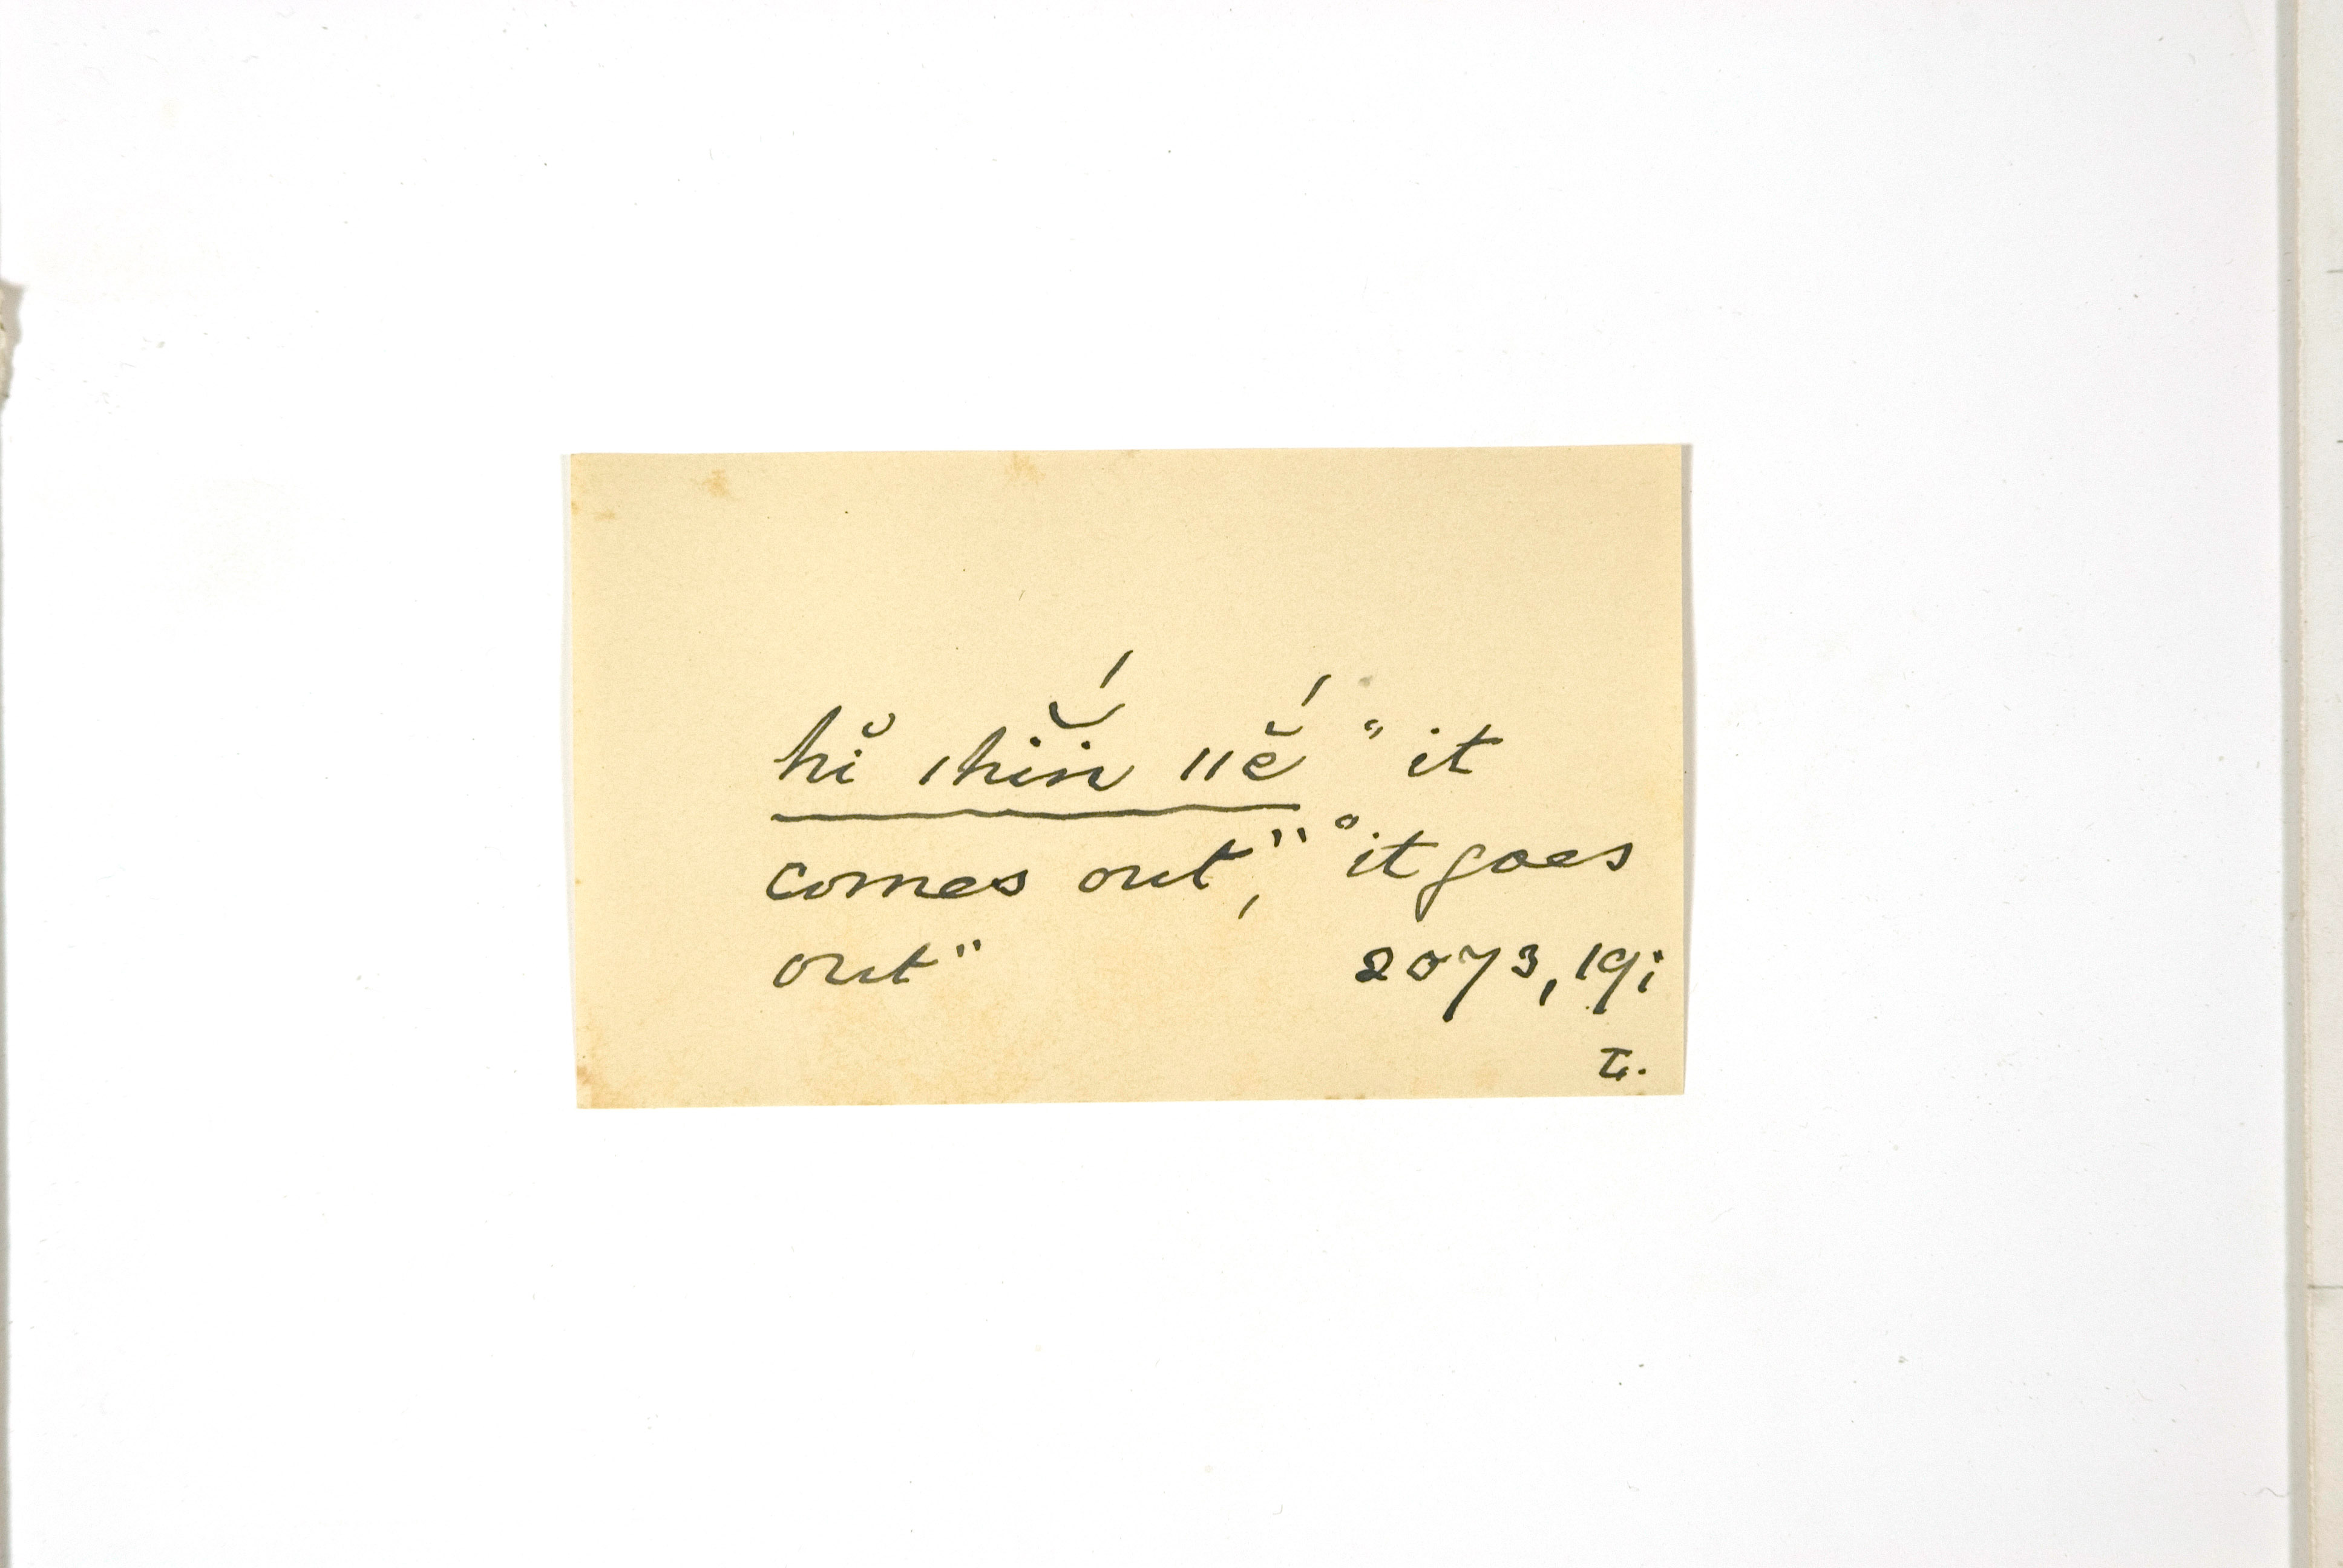 hĭ ıhĭ́n ııĕ́ "it
comes out," "it goes
out" 2073, 19;